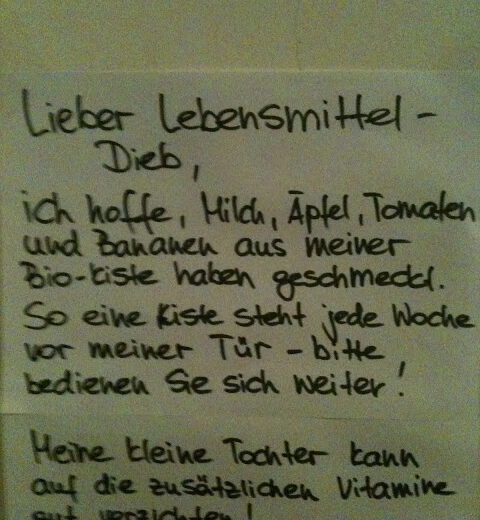 Lieber Lebensmittel-
Dieb,
ich hoffe, Milch, Äpfel, Tomaten
und Bananen aus meiner
Bio-Kiste haben geschmeckt.
So eine Kiste steht jede Woche
vor meiner Tür - bitte
bedienen Sie sich weiter!
Meine kleine Tochter kann
auf die zusätzlichen Vitamine
gut verzichten!